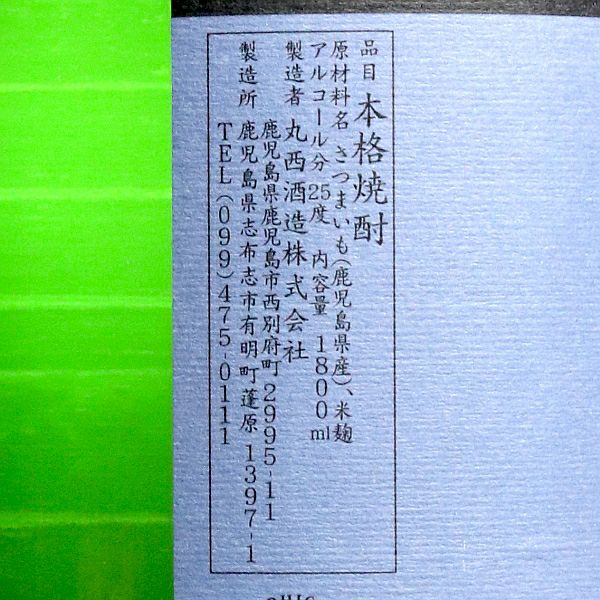 品目 本格焼酎
原材料名 さつまいも(鹿児島県産)、米麹
アルコール分25度 内容量 1800ml
製造者 丸西酒造株式会社
鹿児島県鹿児島市西別府町2995-11
製造所 鹿児島県志布志市有明町蓬原1397-1
TEL(099)475-0111